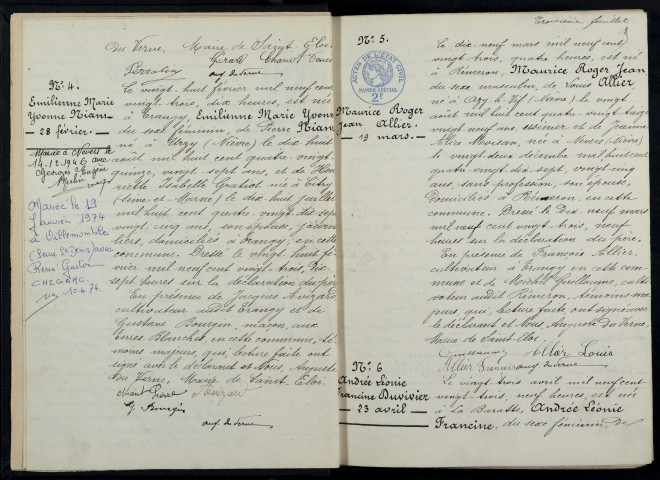 du Verne, Maire de Saint-Eloi.
Perrotin
aug. du Verne
N° 4.
Emilienne Marie
Yvonne Niant
28 février.
Mariée à Nevers le
14.12.1946 avec
Georges Eugène
Mariée le 19
Janvier 1974
à Villemomble
(Seine St Denis) avec
René Gaston
CHEGARC
Le vingt huit février mil neuf cent
vingt-trois, dix heures, est née
à Trangy, Emilienne Marie Yvonne
du sexe féminin, de Pierre Niant
né à Urzy (Nièvre) le dix huit
août mil huit cent quatre-vingt
quinze, vingt sept ans, et de Hen
riette Isabelle Gratiot née à Citry
(Seine et Marne) le dix huit juillet
mil huit cent quatre vingt dix sept
vingt cinq ans, son épouse, journa
liers, domiciliés à Trangy, en cette
commune. Dressé le vingt huit fé
vrier mil neuf cent vingt-trois, dix
sept heures sur la déclaration du père
En présence de Jacques
cultivateur audit Trangy et de
Gustave Bourgin, maçon, aux
terres Blanches, en cette commune, té
moins majeurs, qui, lecture faite ont
signé avec le déclarant et Nous, Auguste
du Verne, Maire de Saint Eloi
Niant Pierre
G. Bourgin
aug. du Verne
Troisième feuillet
N° 5.
ACTES DE L'ETAT CIVIL
PAPIER SPECIAL
2F
Maurice Roger
Jean Allier.
19 mars.
Le dix-neuf mars mil neuf cent
vingt-trois, quatre heures, est né
à Rémeron, Maurice Roger Jean
du sexe masculin, de Louis Allier
né à Azy-le-Vif (Nièvre) le vingt
août mil huit cent quatre vingt treize
vingt neuf ans, et de Jeanne
née à Nevers (Nièvre)
le vingt deux décembre mil huit cent
quatre-vingt dix-sept, vingt-cinq
ans, sans profession, son épouse,
domiciliés à Rémeron, en cette
commune. Dressé le dix neuf mars
mil neuf cent vingt-trois, neuf
heures sur la déclaration du père.
En présence de François Allier,
cultivateur à Trangy en cette com
mune et de Michel Guillaume, culti
vateur audit Rémeron, témoins ma
jeurs, qui, lecture faite, ont signé avec
le déclarant et Nous, Auguste du Verne,
Maire de Saint-Eloi.
Guillaume Allier Louis
Allier aug. du Verne
N° 6
Andrée Léonie
Francine Duvivier
23 avril
Le vingt-trois avril mil neuf cent
vingt-trois, neuf heures, est née
à La Baratte, Andrée Léonie
Francine, du sexe féminin, de